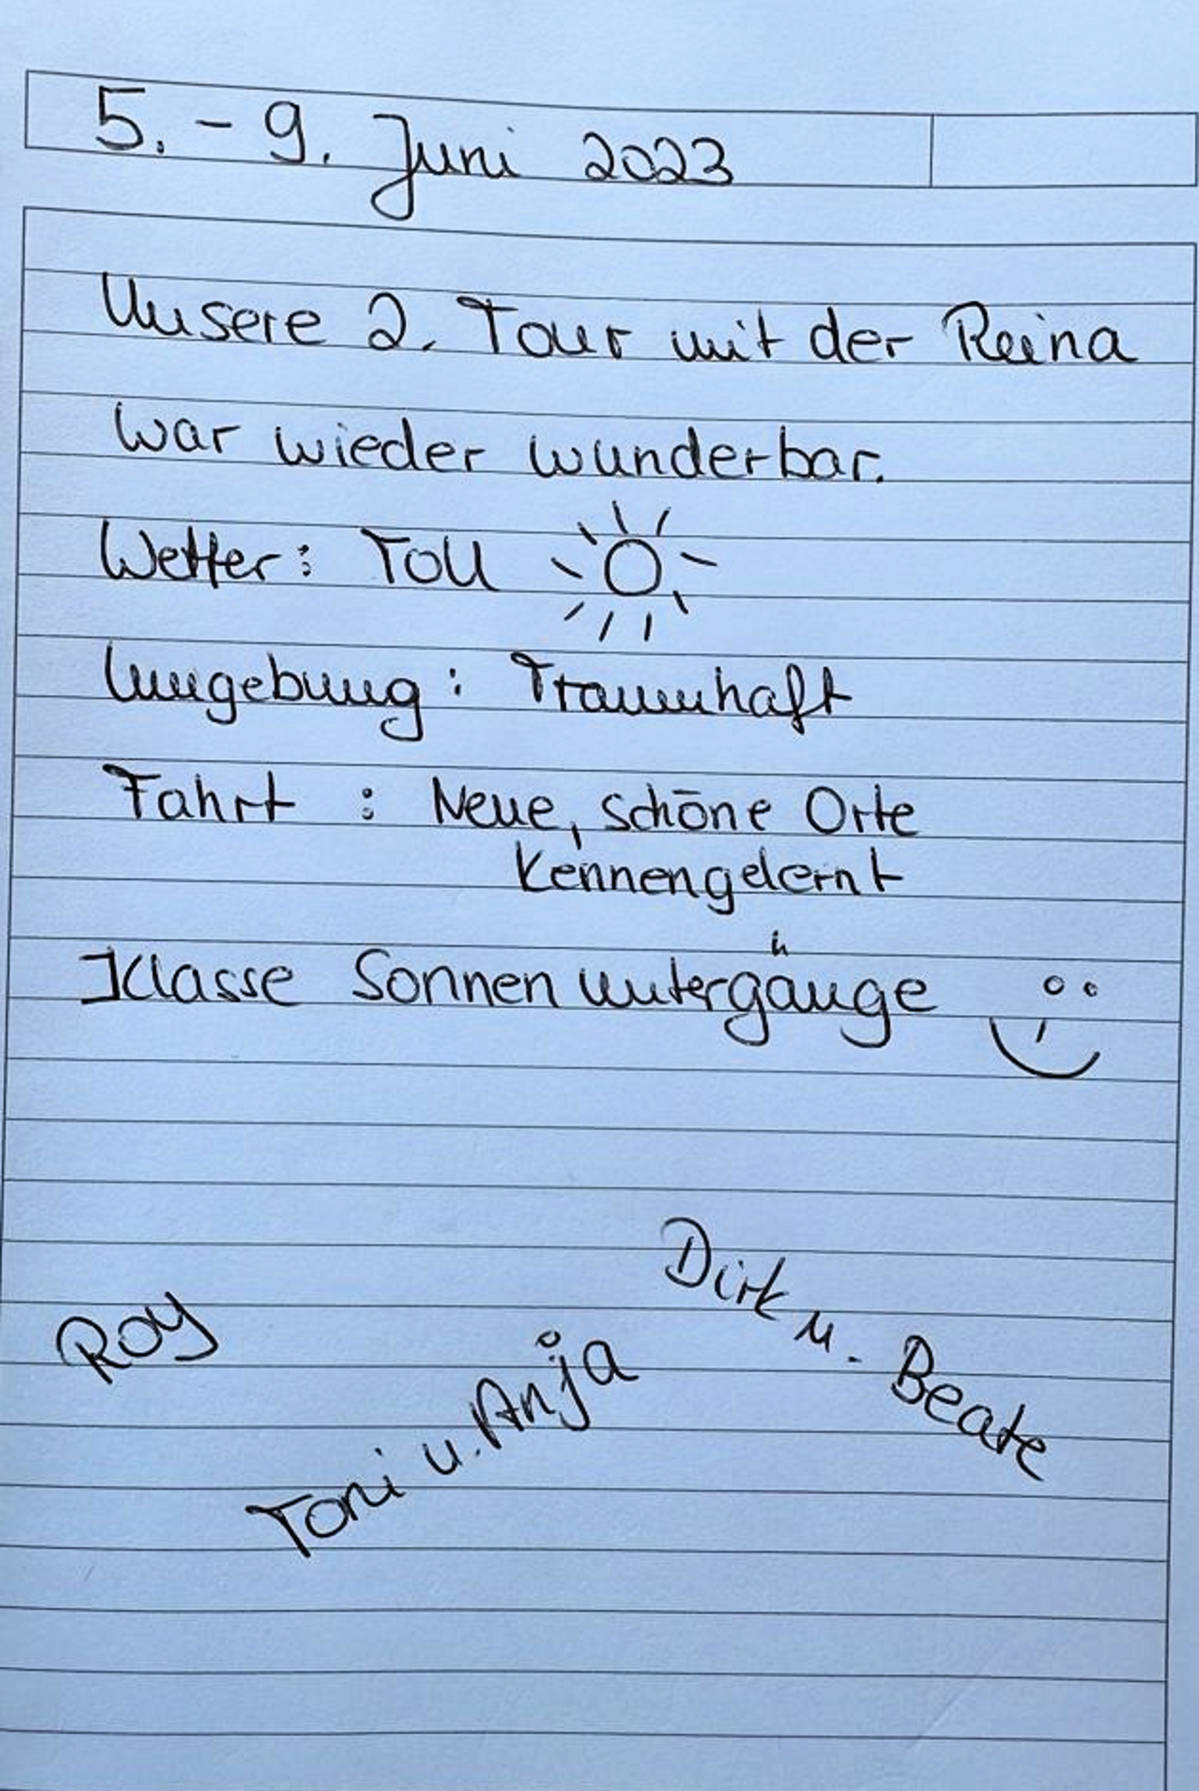 5. - 9. Juni 2023
Unsere 2. Tour mit der Reina
war wieder wunderbar.
Wetter: Toll
Umgebung: Traumhaft
Fahrt : Neue, schöne Orte
kennengelernt
Klasse Sonnenuntergänge
Dirk u. Beate
Roy
Toni u. Anja